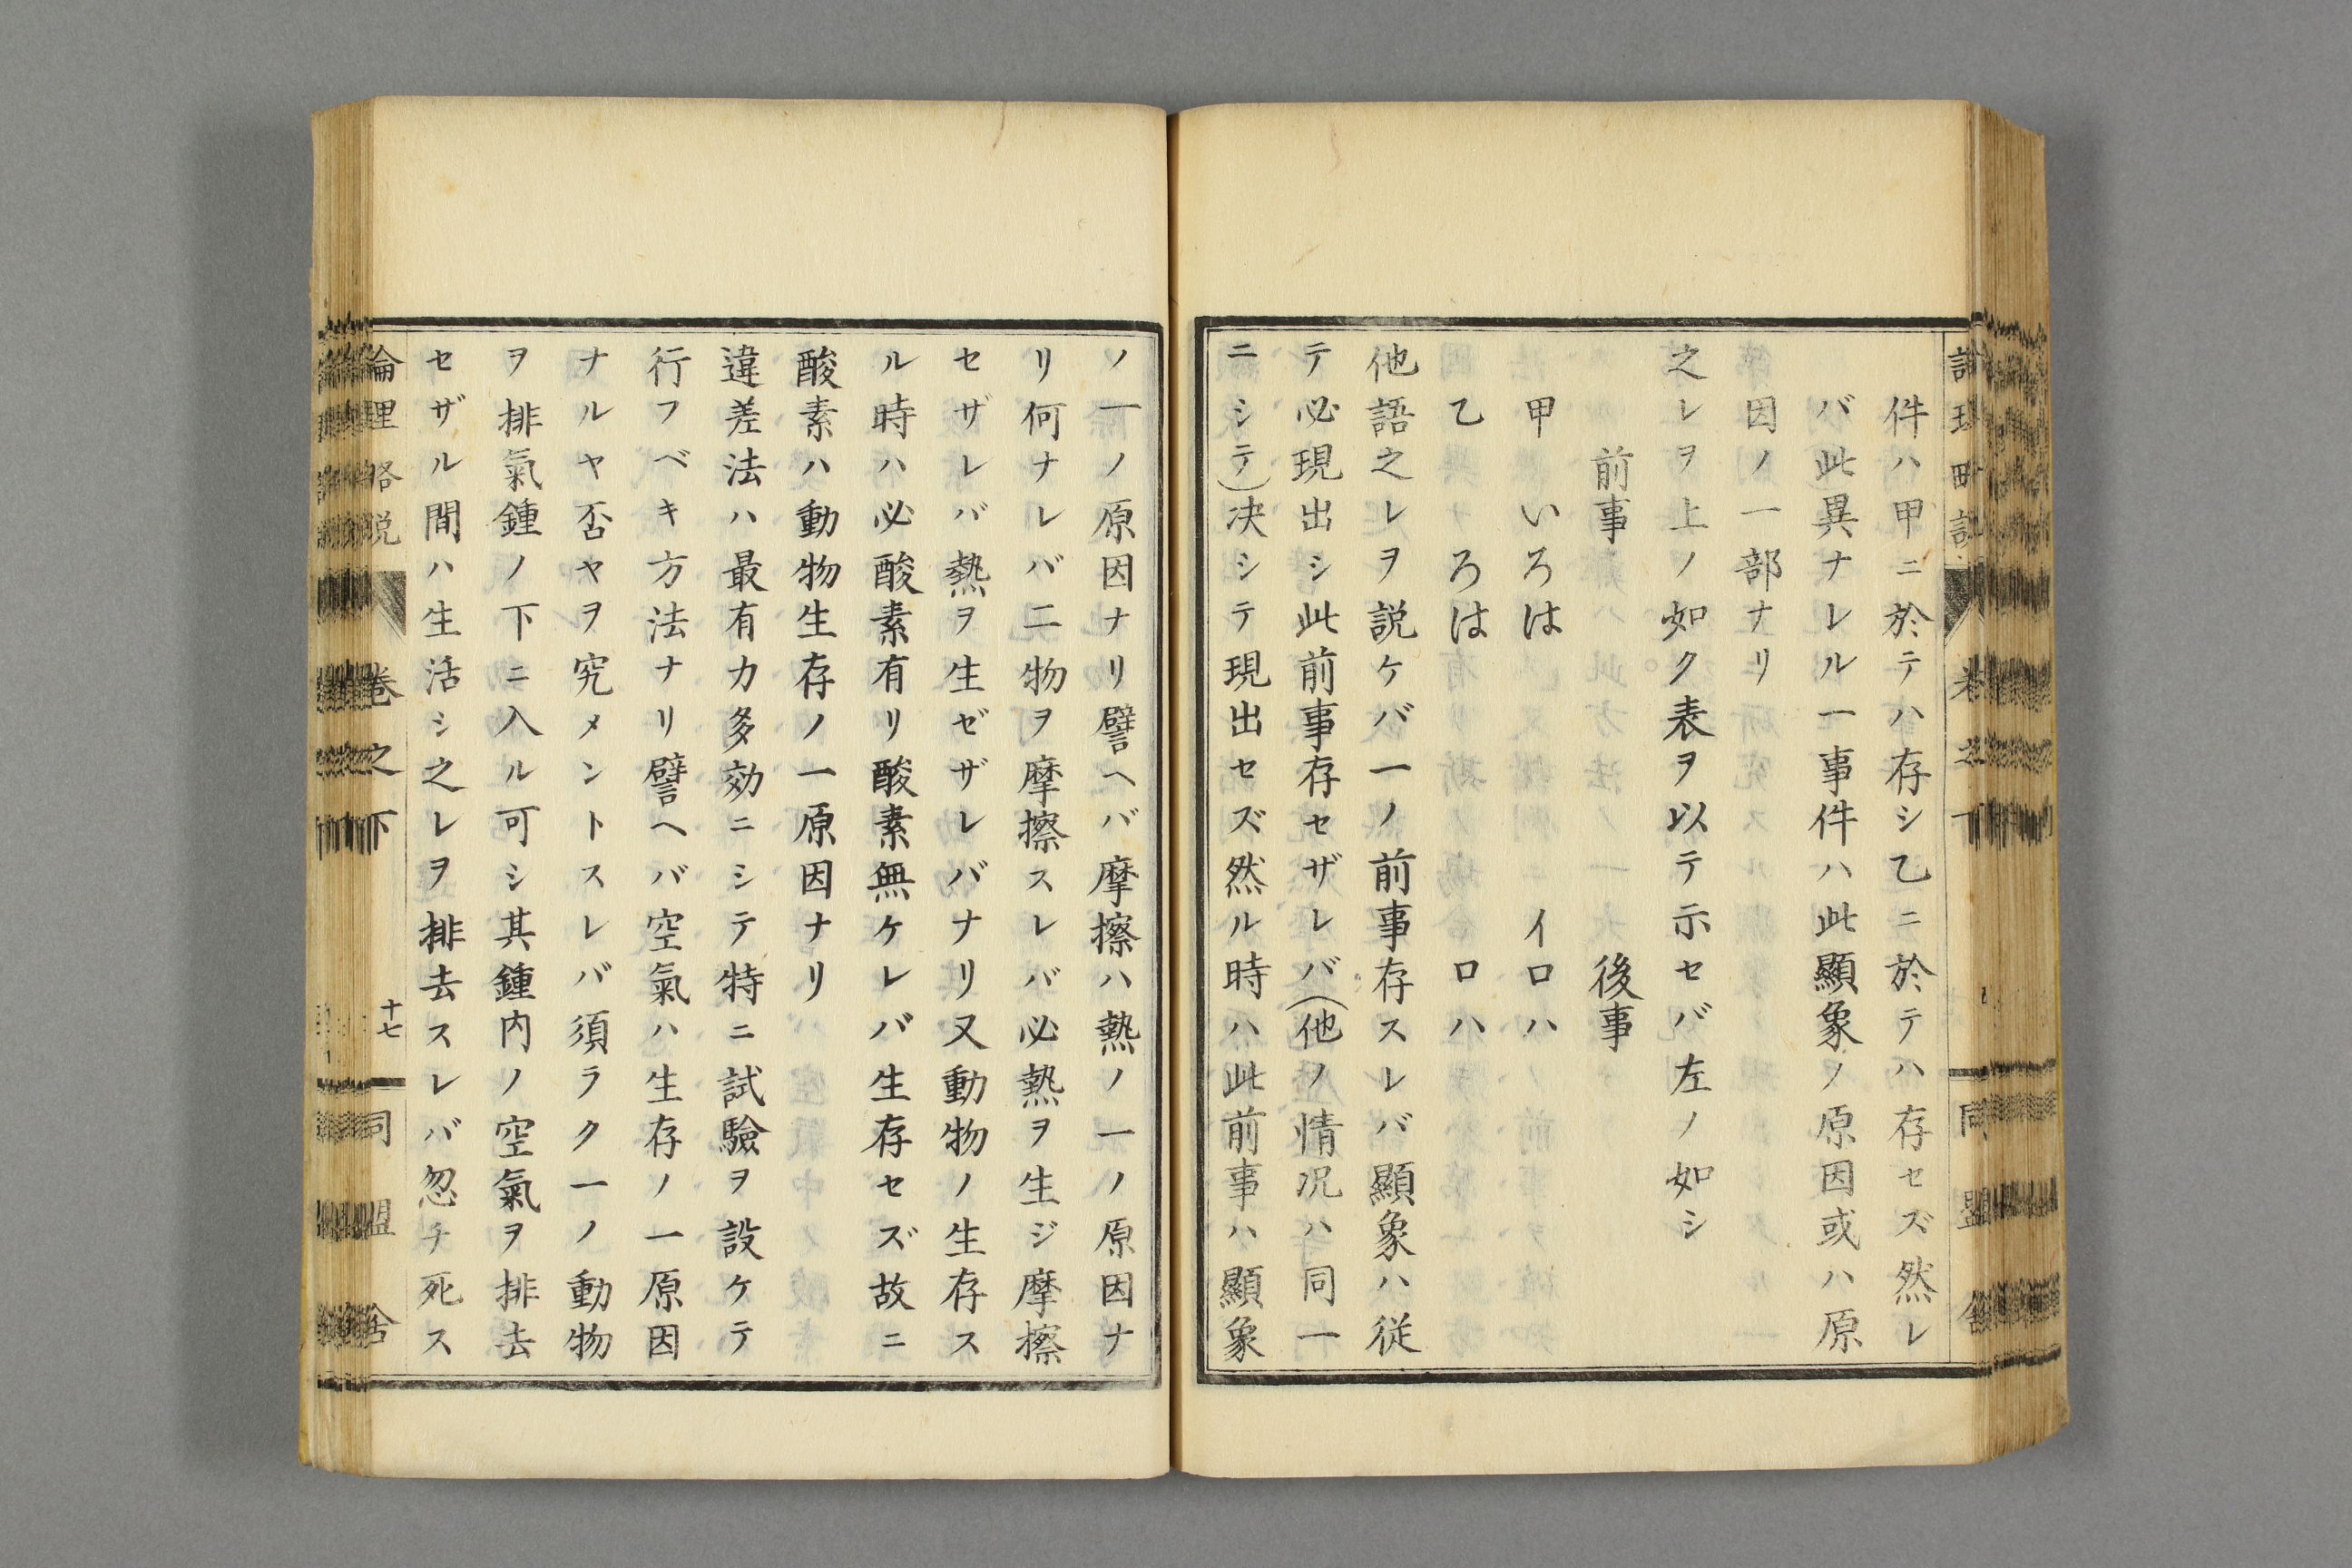 件ハ甲ニ於テハ存シ乙ニ於テハ存セズ然レ
バ此異ナレル一事件ハ此顯象ノ原因或ハ原
因ノ一部ナリ
之レヲ上ノ如ク表ヲ以テ示セバ左ノ如シ
前事　後事
甲　いろは　イロハ
乙　ろは　ロハ
他語之レヲ説ケバ一ノ前事存スレバ顯象ハ従
テ必現出シ此前事存セザレバ(他ノ情况ハ同一
ニシテ)决シテ現出セズ然ル時ハ此前事ハ顯象
ノ一ノ原因ナリ譬ヘバ摩擦ハ熱ノ一ノ原因ナ
リ何ナレバ二物ヲ摩擦スレバ必熱ヲ生ジ摩擦
セザレバ熱ヲ生ゼザレバナリ又動物ノ生存ス
ル時ハ必酸素有リ酸素無ケレバ生存セズ故ニ
酸素ハ動物生存ノ一原因ナリ
違差法ハ最有力多効ニシテ特ニ試驗ヲ設ケテ
行フベキ方法ナリ譬ヘバ空氣ハ生存ノ一原因
ナルヤ否ヤヲ究メントスレバ須ラク一ノ動物
ヲ排氣鍾ノ下ニ入ル可シ其鍾内ノ空氣ヲ排去
セザル間ハ生活シ之レヲ排去スレバ忽チ死ス
論理略説　卷之下　十七　同盟舍